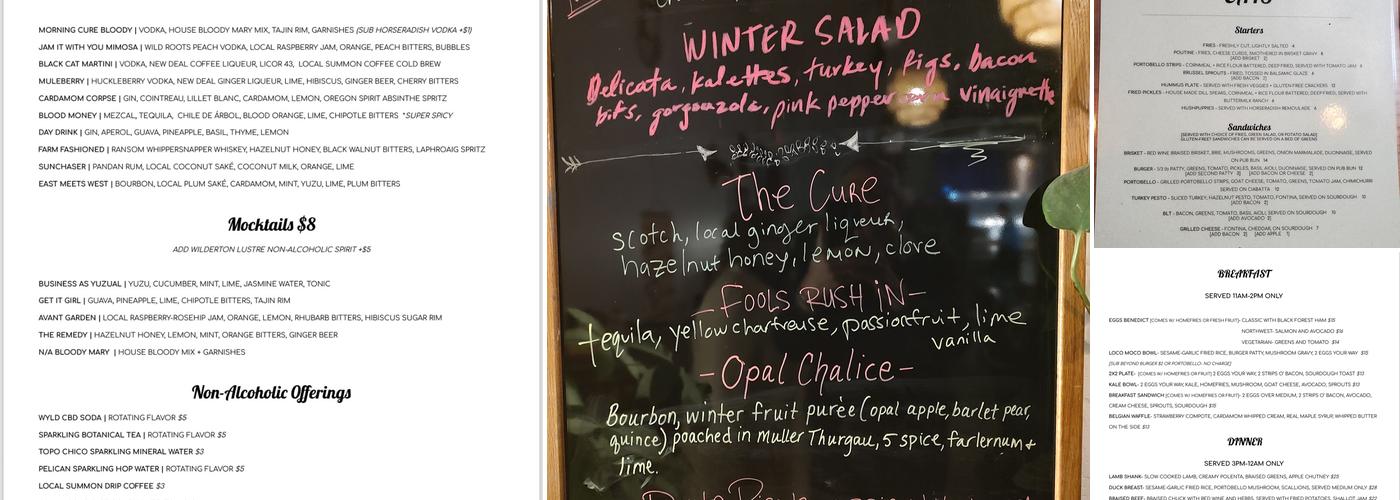 MORNING CURE BLOODY | VODKA, HOUSE BLOODY MARY MIX, TAJIN RIM, GARNISHES (SUB HORSERADISH VODKA +$1)
JAM IT WITH YOU MIMOSA | WILD ROOTS PEACH VODKA, LOCAL RASPBERRY JAM, ORANGE, PEACH BITTERS, BUBBLES
BLACK CAT MARTINI | VODKA, NEW DEAL COFFEE LIQUEUR, LICOR 43, LOCAL SUMMON COFFEE COLD BREW
MULEBERRY | HUCKLEBERRY VODKA, NEW DEAL GINGER LIQUEUR, LIME, HIBISCUS, GINGER BEER, CHERRY BITTERS
CARDAMOM CORPSE | GIN, COINTREAU, LILLET BLANC, CARDAMOM, LEMON, OREGON SPIRIT ABSINTHE SPRITZ
BLOOD MONEY | MEZCAL, TEQUILA, CHILE DE ÁRBOL, BLOOD ORANGE, LIME, CHIPOTLE BITTERS *SUPER SPICY
DAY DRINK | GIN, APEROL, GUAVA, PINEAPPLE, BASIL, THYME, LEMON
FARM FASHIONED | RANSOM WHIPPERSNAPPER WHISKEY, HAZELNUT HONEY, BLACK WALNUT BITTERS, LAPHROAIG SPRITZ
SUNCHASER | PANDAN RUM, LOCAL COCONUT SAKÉ, COCONUT MILK, ORANGE, LIME
EAST MEETS WEST | BOURBON, LOCAL PLUM SAKÉ, CARDAMOM, MINT, YUZU, LIME, PLUM BITTERS
Mocktails $8
ADD WILDERTON LUSTRE NON-ALCOHOLIC SPIRIT +$5
BUSINESS AS YUZUAL | YUZU, CUCUMBER, MINT, LIME, JASMINE WATER, TONIC
GET IT GIRL | GUAVA, PINEAPPLE, LIME, CHIPOTLE BITTERS, TAJIN RIM
AVANT GARDEN | LOCAL RASPBERRY-ROSEHIP JAM, ORANGE, LEMON, RHUBARB BITTERS, HIBISCUS SUGAR RIM
THE REMEDY | HAZELNUT HONEY, LEMON, MINT, ORANGE BITTERS, GINGER BEER
N/A BLOODY MARY | HOUSE BLOODY MIX + GARNISHES
Non-Alcoholic Offerings
WYLD CBD SODA | ROTATING FLAVOR $5
SPARKLING BOTANICAL TEA | ROTATING FLAVOR $5
TOPO CHICO SPARKLING MINERAL WATER $3
PELICAN SPARKLING HOP WATER | ROTATING FLAVOR $5
LOCAL SUMMON DRIP COFFEE $3
WINTER SALAD
Delicata, kalettes, turkey, figs, bacon
bits, gorgonzola, pink pepper vinaigrette
The Cure
scotch, local ginger liqueur,
hazelnut honey, lemon, clove
-FOOLS RUSH iN-
tequila, yellow chartreuse, passionfruit, lime
vanilla
-Opal Chalice-
Bourbon, winter fruit purée (opal apple, barlet pear,
quince) poached in Muller Thurgau, 5 spice, farlernum +
lime.
Starters
FRIES - FRESHLY CUT, LIGHTLY SALTED 4
POUTINE - FRIES, CHEESE CURDS, SMOTHERED IN BRISKET GRAVY 8
[ADD BRISKET 2]
PORTOBELLO STRIPS - CORNMEAL + RICE FLOUR BATTERED, DEEP FRIED, SERVED WITH TOMATO JAM 6
BRUSSEL SPROUTS - FRIED, TOSSED IN BALSAMIC GLAZE 6
[ADD BACON 2]
HUMMUS PLATE - SERVED WITH FRESH VEGGIES + GLUTEN-FREE CRACKERS 12
FRIED PICKLES - HOUSE MADE DILL SPEARS, CORNMEAL + RICE FLOUR BATTERED, DEEP FRIED, SERVED WITH
BUTTERMILK RANCH 6
HUSHPUPPIES - SERVED WITH HORSERADISH REMOULADE 6
Sandwiches
[SERVED WITH CHOICE OF FRIES, GREEN SALAD, OR POTATO SALAD]
GLUTEN-FREE? SANDWICHES CAN BE SERVED ON A BED OF GREENS
BRISKET - RED WINE BRAISED BRISKET, BRIE, MUSHROOMS, GREENS, ONION MARMALADE, DIJONNAISE, SERVED
ON PUB BUN 14
BURGER - 1/3 lb PATTY, GREENS, TOMATO, PICKLES, BASIL AIOLI, DIJONNAISE, SERVED ON PUB BUN 12
[ADD SECOND PATTY 3] [ADD BACON OR CHEESE 2]
PORTOBELLO - GRILLED PORTOBELLO STRIPS, GOAT CHEESE, TOMATO, GREENS, TOMATO JAM, CHIMICHURRI
SERVED ON CIABATTA 12
TURKEY PESTO - SLICED TURKEY, HAZELNUT PESTO, TOMATO, FONTINA, SERVED ON SOURDOUGH 10
[ADD BACON 2]
BLT - BACON, GREENS, TOMATO, BASIL AIOLI, SERVED ON SOURDOUGH 10
[ADD AVOCADO 2]
GRILLED CHEESE - FONTINA, CHEDDAR, ON SOURDOUGH 7
[ADD BACON 2] [ADD APPLE 1]
BREAKFAST
SERVED 11AM-2PM ONLY
EGGS BENEDICT [COMES W/ HOMEFRIES OR FRESH FRUIT]- CLASSIC WITH BLACK FOREST HAM $15
NORTHWEST- SALMON AND AVOCADO $16
VEGETARIAN- GREENS AND TOMATO $14
LOCO MOCO BOWL- SESAME-GARLIC FRIED RICE, BURGER PATTY, MUSHROOM GRAVY, 2 EGGS YOUR WAY $15
[SUB BEYOND BURGER $2 OR PORTOBELLO- NO CHARGE]
2X2 PLATE- [COMES W/ HOMEFRIES OR FRUIT] 2 EGGS YOUR WAY, 2 STRIPS O' BACON, SOURDOUGH TOAST $13
KALE BOWL- 2 EGGS YOUR WAY, KALE, HOMEFRIES, MUSHROOM, GOAT CHEESE, AVOCADO, SPROUTS $13
BREAKFAST SANDWICH [COMES W/ HOMEFRIES OR FRUIT]- 2 EGGS OVER MEDIUM, 2 STRIPS O' BACON, AVOCADO,
CREAM CHEESE, SPROUTS, SOURDOUGH $15
BELGIAN WAFFLE- STRAWBERRY COMPOTE, CARDAMOM WHIPPED CREAM, REAL MAPLE SYRUP, WHIPPED BUTTER
ON THE SIDE $13
DINNER
SERVED 3PM-12AM ONLY
LAMB SHANK- SLOW COOKED LAMB, CREAMY POLENTA, BRAISED GREENS, APPLE CHUTNEY $25
DUCK BREAST- SESAME-GARLIC FRIED RICE, PORTOBELLO MUSHROOM, SCALLIONS, SERVED MEDIUM ONLY $28